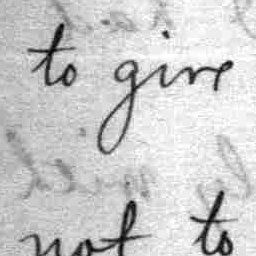 to give
not to